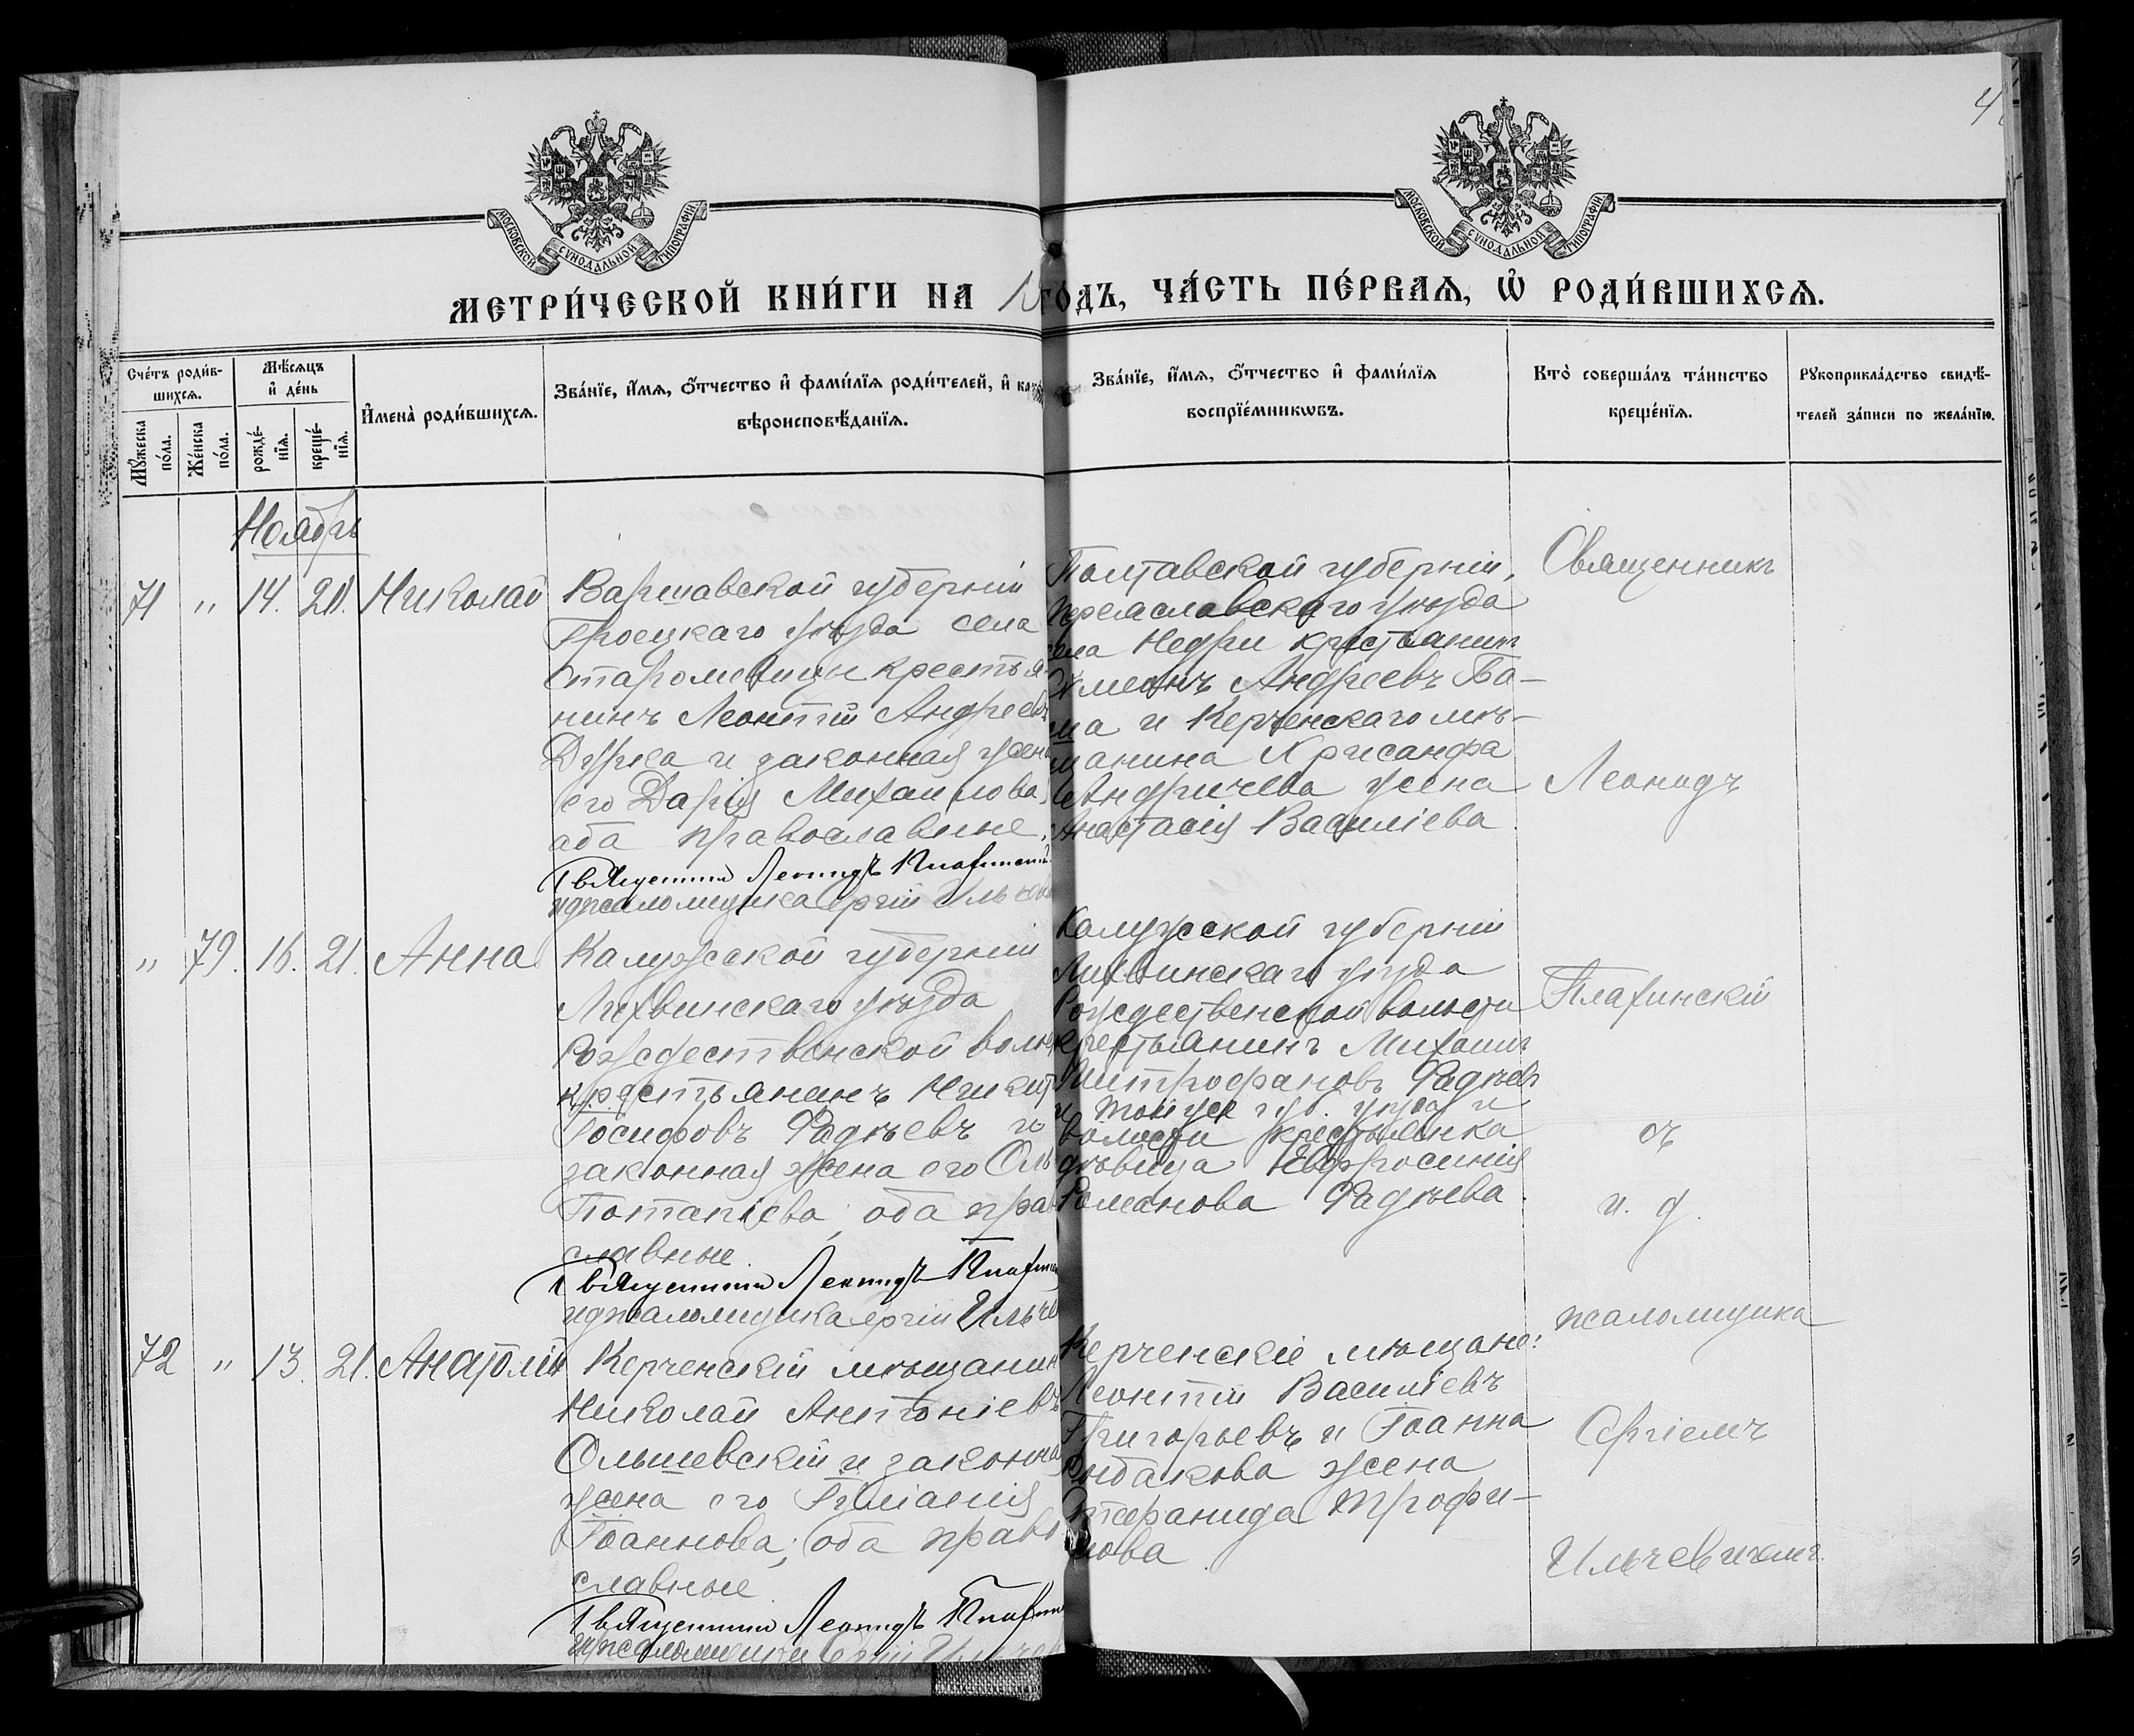 4
МОСКОВСКОЙ СУНОДАЛЬНОЙ ТИПОГРАФІИ
МОСКОВСКОЙ СУНОДАЛЬНОЙ ТИПОГРАФІИ
МЕТРИ́ЧЕСКОЙ КНИ́ГИ НА 1
ГО́ДЪ, ЧА́СТЬ ПЕ́РВАѦ, Ѡ РОДИ́ВШИХСѦ.
Сче́тъ роди́в-
шихсѧ.
Мꙋ́жеска по́ла.
Же́нска по́ла.
Мѣ́сѧцъ
и҆ де́нь
рожде́-
нїѧ.
креще́-
нїѧ.
И҆мена̀ роди́вшихсѧ.
Зва́нїе, и҆́мѧ, ѻ҆́тчество и҆ фами́лїѧ роди́телей, и҆
вѣроисповѣ́данїѧ.
Зва́нїе, и҆́мѧ, ѻ҆́тчество и҆ фами́лїѧ
воспрїе́мникѡвъ.
Кто̀ соверша́лъ та́инство
креще́нїѧ.
Рꙋкоприкла́дство свидѣ́-
телей за́писи по жела́нїю.
Ноябрь
71 " 14. 21. Николай
Варшавской губерніи
Гроецкаго уѣзда села
крестья-
нинъ Леонтій Андреевъ
и законная жена
его Дарія Михаилова,
оба православные.
Священникъ Леонидъ Плахинскій
и д псаломщика Сергій Ильчев
Полтавской губерніи,
Переяславскаго уѣзда
села Недри крестьянинъ
Симеонъ Андреевъ Ба-
ша и Керченскаго мѣ-
щанина Хрисанфа
Андричева жена
Анастасія Василіева.
" 79. 16. 21. Анна
Калужской губерніи
Лихвинскаго уѣзда
Рождественской волос
крестьянинъ Никит
Іосифовъ Фадѣевъ и
законная жена его Оль
Потапіева, оба пра
славные.
Священникъ Леонидъ Плахин
и д псаломщика Сергій Ильче
Калужской губерніи
Лихвинскаго уѣзда
Рождественской волости
крестьянинъ Михаилъ
Митрофановъ Фадѣевъ
и той же губ. уѣзда и
волости крестьянка
дѣвица Евфросинія
Романова Фадѣева.
72 " 13. 21. Анатолій
Керченскій мѣщанин
Николай Антоніевъ
Ольшевскій и законна
жена его Іуліанія
Іоаннова; оба право
славные
Священникъ Леонидъ Плахин
и д псаломщика Сергій Ильчев
Керченскіе мѣщане:
Леонтій Василіевъ
Григорьевъ и Іоанна
Рыбакова жена
Стефанида Трофи-
мова.
Священникъ
Леонидъ
Плахинскій
съ
и. д.
псаломщика
Сергіемъ
Ильчевичемъ.